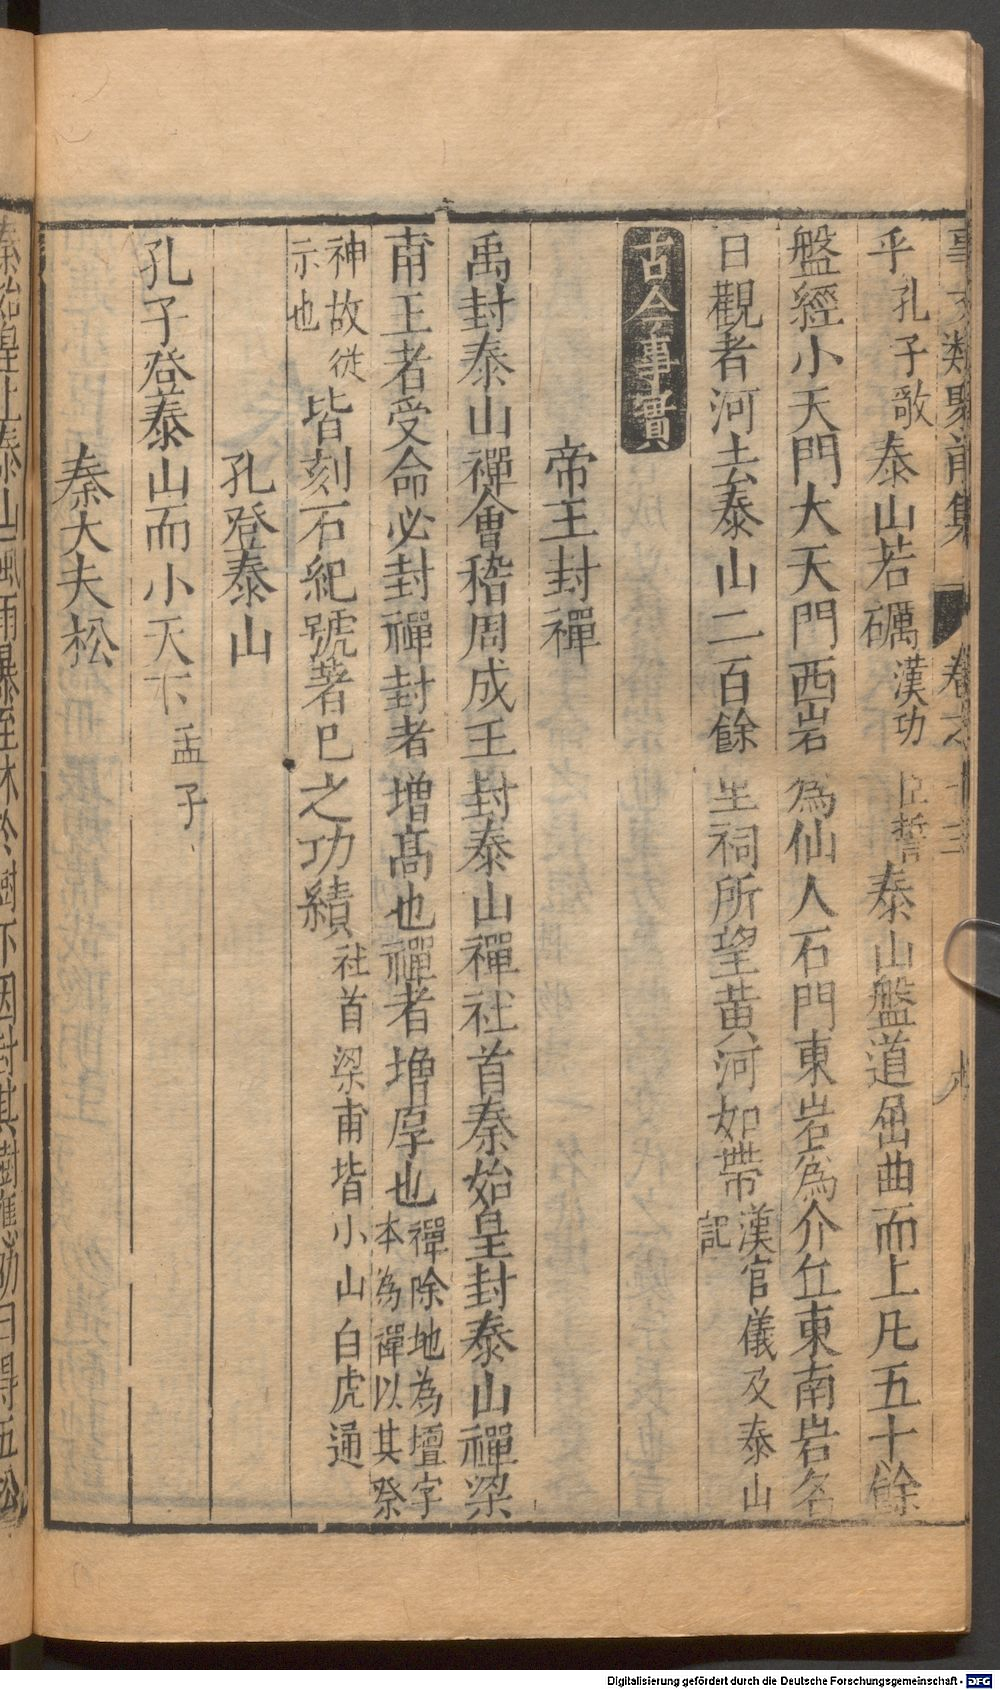 事文類聚前集 卷之十三 九
乎孔子歌泰山若礪漢功臣誓泰山盤道屈曲而上凡五十餘
盤經小天門大天門西岩為仙人石門東岩為介丘東南岩名
日觀者河去泰山二百餘里祠所望黃河如帶漢官儀及泰山記
古今事實
帝王封禪
禹封泰山禪會稽周成王封泰山禪社首秦始皇封泰山禪梁
甫王者受命必封禪封者增高也禪者增厚也禪除地為壇字本為禪以其祭
神故從示也皆刻石紀號著已之功績社首梁甫皆小山白虎通
孔登泰山
孔子登泰山而小天下孟子
秦大夫松
秦始皇上泰山風雨暴至休於樹下因封其樹
Digitalisierung gefördert durch die Deutsche Forschungsgemeinschaft - DFG